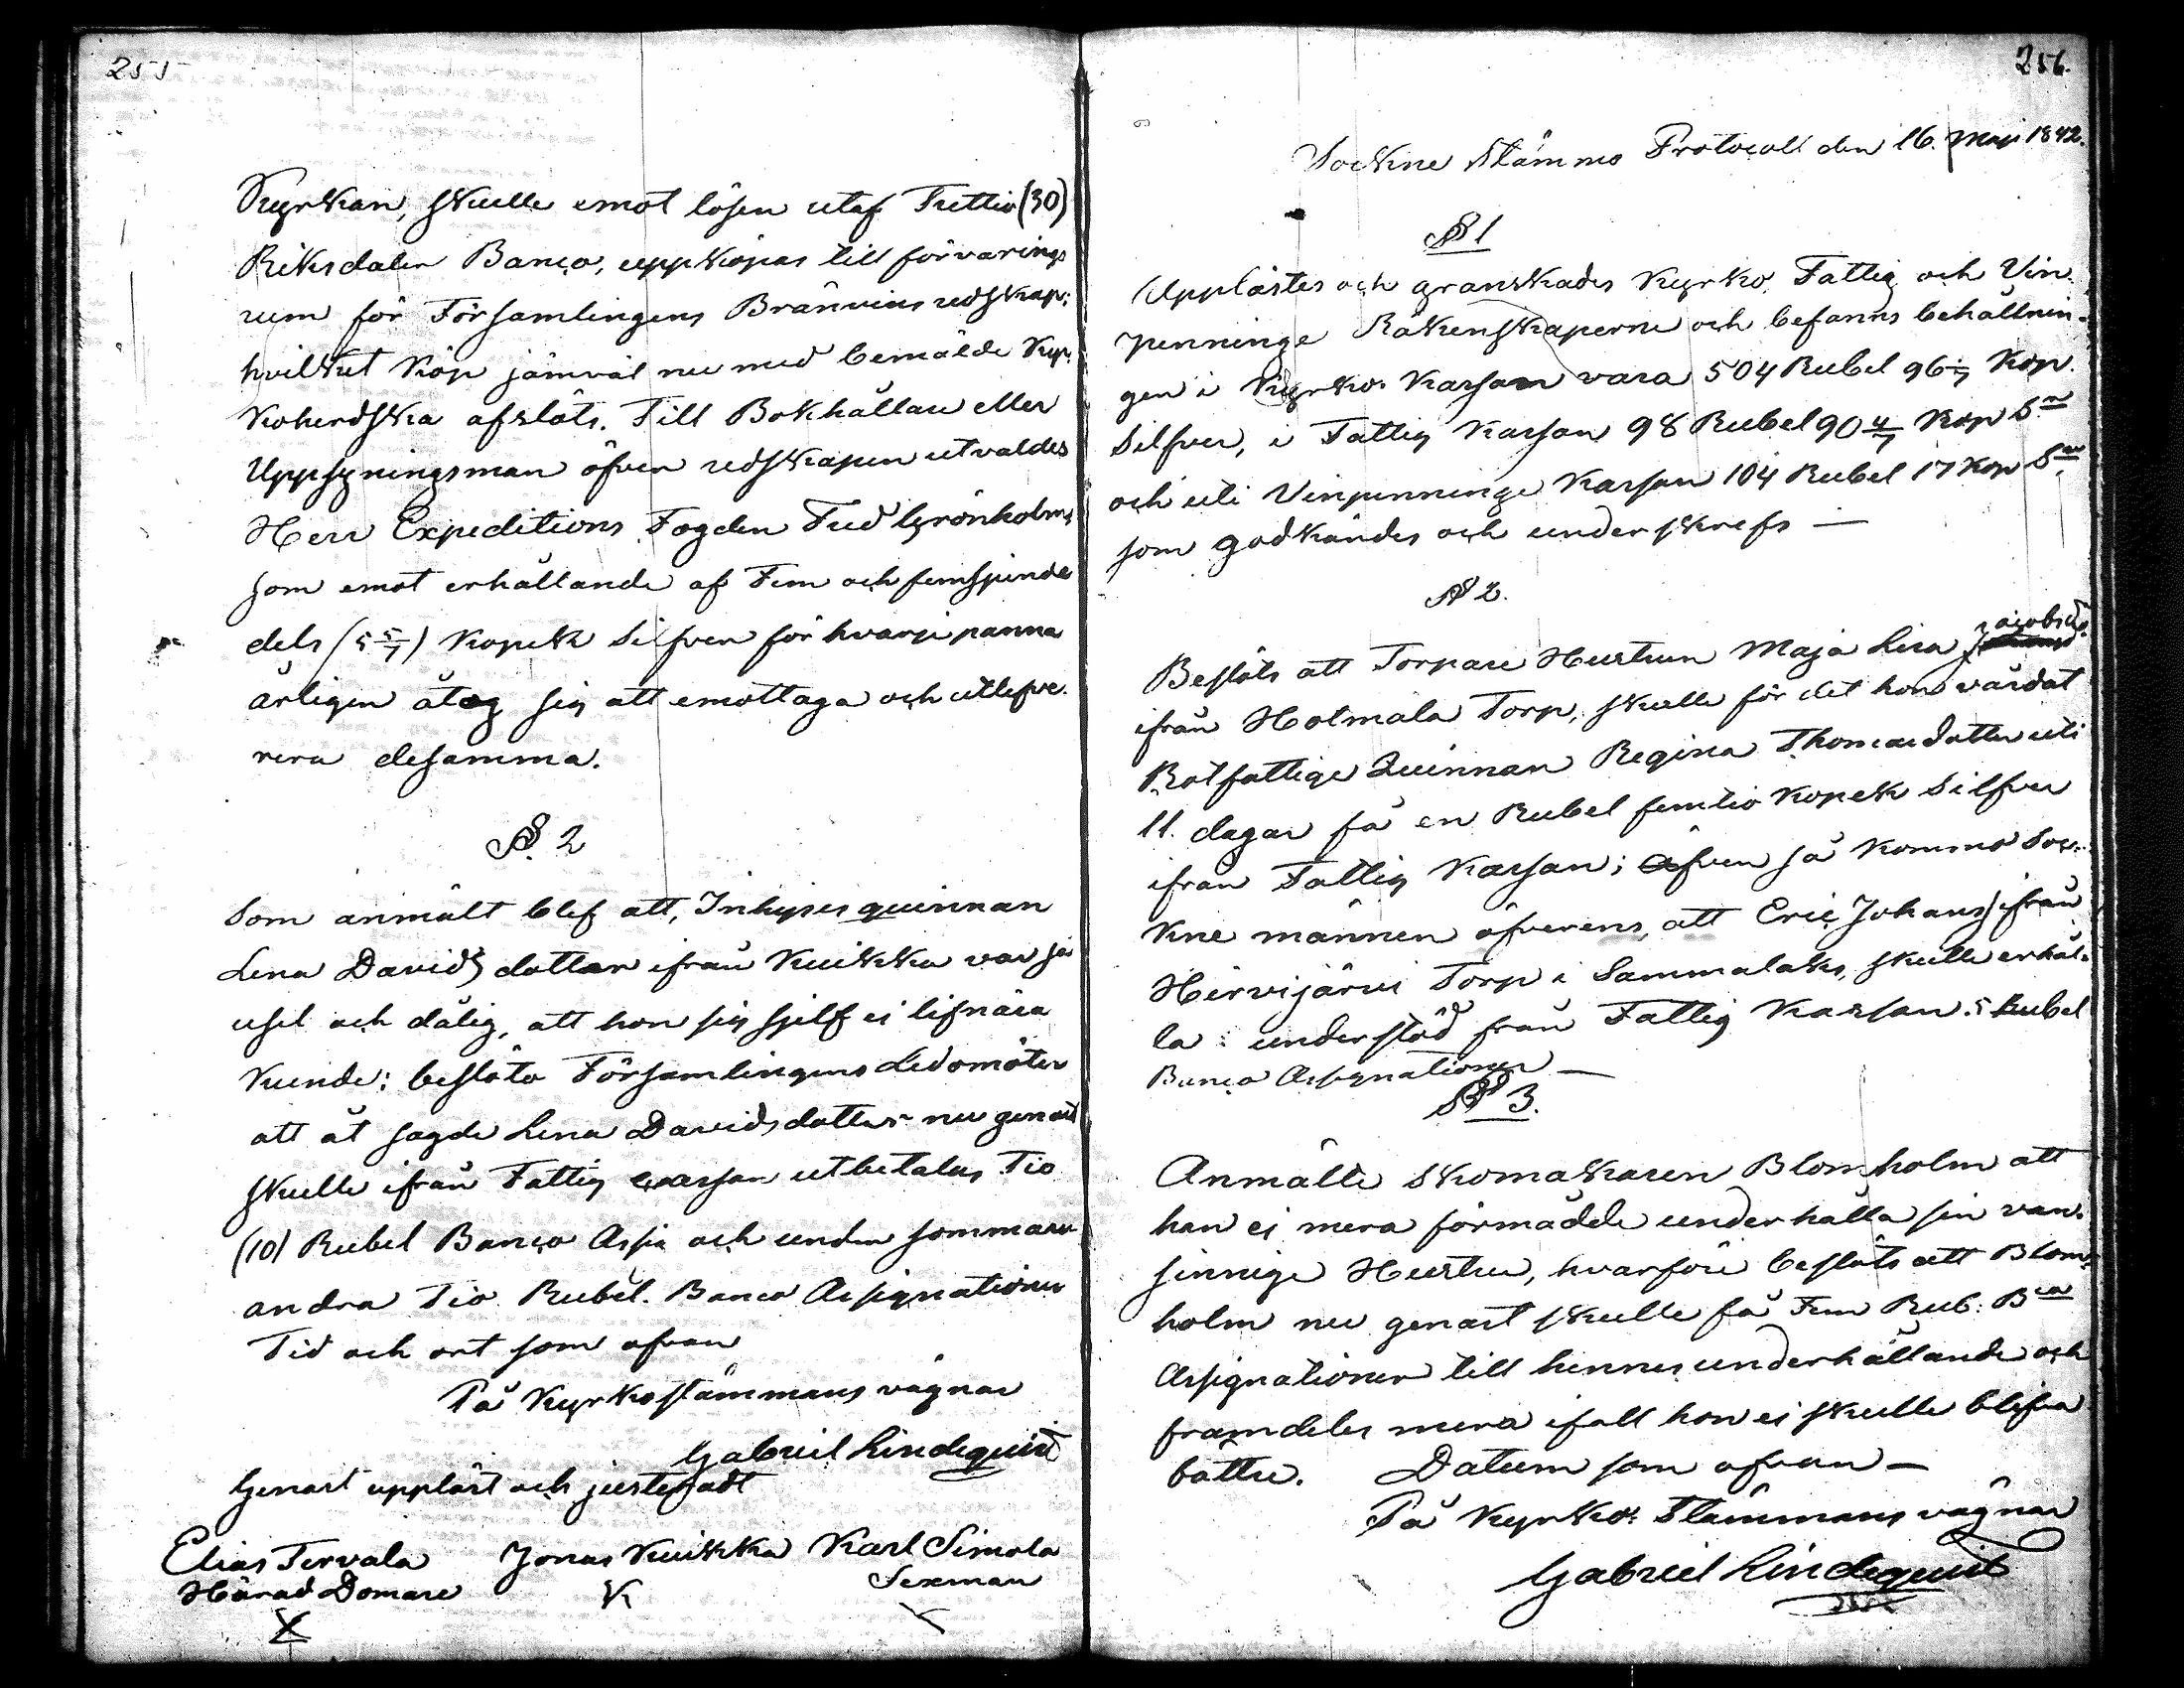 255
Kyrkan, skulle emot lösen utaf Trettio (30)
Riksdaler Banco, uppköpas till förvarings
rum för Församlingens Bränvins redskap:
hvilket Köp jämväl nu med bemälde Kyr-
koherdska afslöts. Till Bokhållare eller
Uppsyningsman öfver redskapen utvaldes
Herr Expeditions Fogden Fred Grönholm,
som emot erhållande af Fem och femsjunde
dels (5 5/7) Kopek Silfver för hvarje panna
årligen åtog sig att emottaga och utlefve-
rera desamma.
§. 2
Som anmält blef att, Inhyses quinnan
Lena Davids dotter ifrån Kuikka var så
usel och dålig, att hon sig sjelf ej lifnära
Kunde; beslöto Församlingens Ledamöter
att åt sagde Lena Davidsdotter nu genast
skulle ifrån Fattig Cassan utbetalas Tio
(10) Rubel Banco Assig och under sommaren
andra Tio Rubel. Banco Assignationer
Tid och ort som ofvan
På Kyrkostämmans vägnar
Gabriel Lindequist
Genast uppläst och justeradt
Elias Tervala Jonas Kuikka Karl Simola
Härad Domare Sexman
256.
Sockne Stämmo Protocoll den 16. Maji 1842.
§ 1
Upplästes och granskades Kyrko, Fattig och Vin-
penninge Räkenskaperne och befanns behållnin-
gen i Kyrko Kassan vara 504 Rubel 96 Kop.
Silfver, i Fattig Kassan 98 Rubel 90 4/7 Kop S:r
och uti Vinpenninge Kassan 104 Rubel 17 Kop S:r,
som godkändes och underskrefs —
§ 2.
Beslöts att Torpare Hustrun Maja Lisa Jacobsd:r
ifrån Hotmala Torp, skulle för det hon vårdat
Rotfattige Quinnan Regina Thomasdotter uti
11. dagar få en Rubel femtio Kopek Silfver
ifrån Fattig Kassan; äfven så kommo Soc-
kne männen öfverens, att Eric Johansson ifrån
Hirvijärvi Torp i Sammalaks, skulle erhål-
la understöd från Fattig Kassan 5 Rubel
Banco Assignationer —
§ 3.
Anmälte Skomakaren Blomholm att
han ej mera förmådde underhålla sin van-
sinniga Hustru, hvarföre beslöts att Blom-
holm nu genast skulle få Fem Rub: B:co
Assignationer till hennes underhållande och
framdeles mera ifall hon ej skulle blifva
bättre. Datum som ofvan —
På Kyrko Stämmans vägnar
Gabriel Lindequist